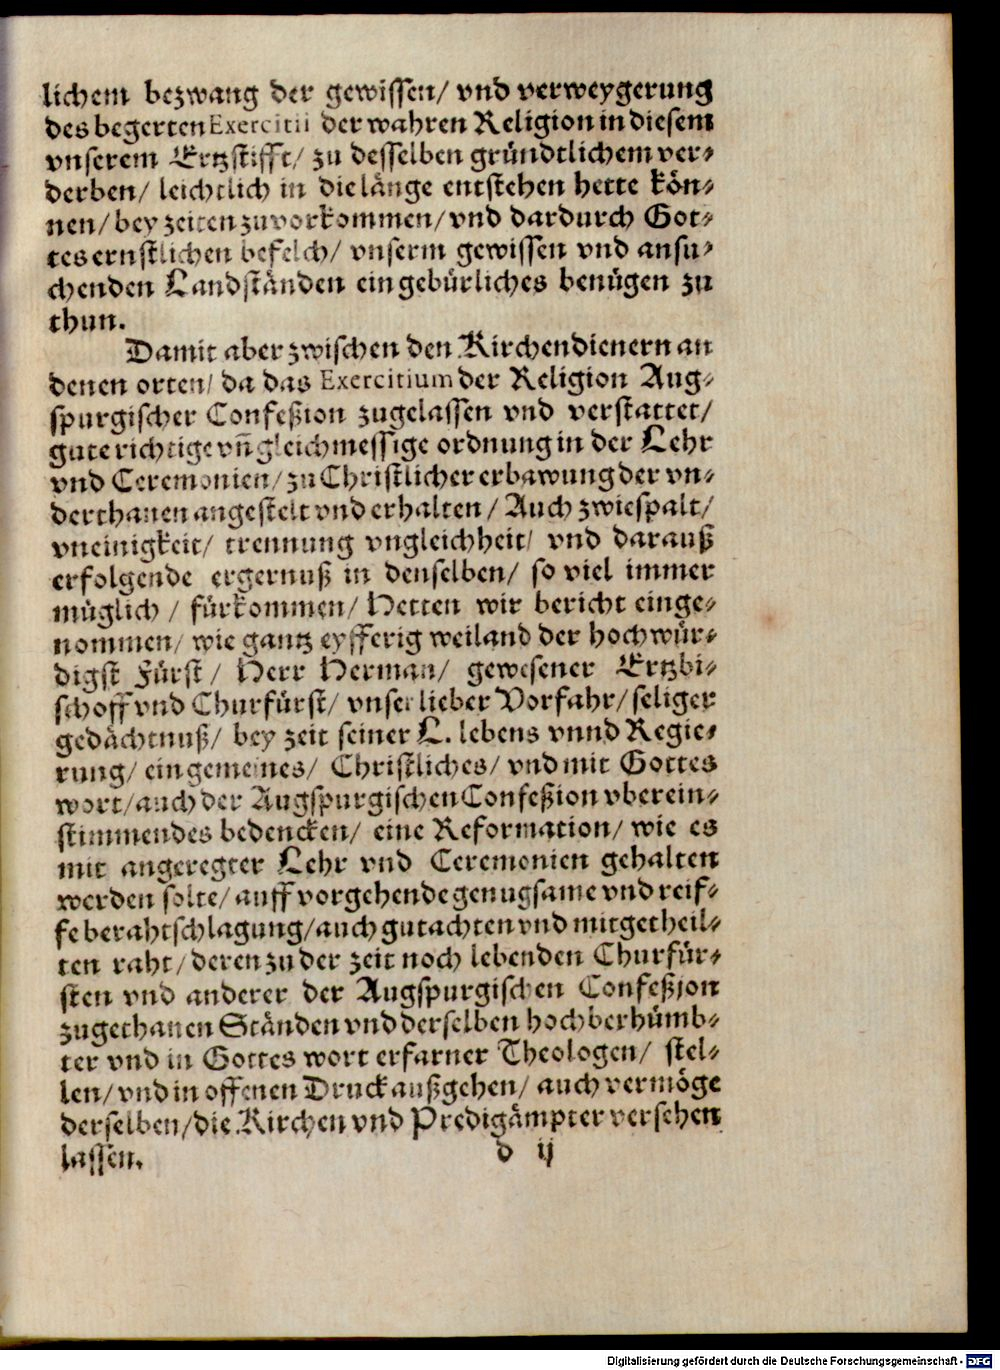 lichem bezwang der gewissen/ vnd verweygerung
des begerten Exercitii der wahren Religion in diesem
vnserem Ertzstifft/ zu desselben gründtlichem ver-
derben/ leichtlich in die länge entstehen hette kön-
nen/ bey zeiten zuvorkommen/ vnd dardurch Got-
tes ernstlichen befelch/ vnserm gewissen vnd ansu-
chenden Landständen ein gebürliches benügen zu
thun.
Damit aber zwischen den Kirchendienern an
denen orten/ da das Exercitium der Religion Aug-
spurgischer Confeßion zugelassen vnd verstattet/
gute richtige vñ gleichmessige ordnung in der Lehr
vnd Ceremonien/ zu Christlicher erbawung der vn-
derthanen angestelt vnd erhalten/ Auch zwiespalt/
vneinigkeit/ trennung vngleichheit/ vnd darauß
erfolgende ergernuß in denselben/ so viel immer
müglich/ fürkommen/ Hetten wir bericht einge-
nommen/ wie gantz eyfferig weiland der hochwür-
digst Fürst/ Herr Herman/ gewesener Ertzbi-
schoff vnd Churfürst/ vnser lieber Vorfahr/ seliger
gedächtnuß/ bey zeit seiner L. lebens vnnd Regie-
rung/ ein gemeines/ Christliches/ vnd mit Gottes
wort/ auch der Augspurgischen Confeßion vberein-
stimmendes bedencken/ eine Reformation/ wie es
mit angeregter Lehr vnd Ceremonien gehalten
werden solte/ auff vorgehende genugsame vnd reif-
fe berahtschlagung/ auch gutachten vnd mitgetheil-
ten raht/ deren zu der zeit noch lebenden Churfür-
sten vnd anderer der Augspurgischen Confeßion
zugethanen Ständen vnd derselben hochberhümb-
ter vnd in Gottes wort erfarner Theologen/ stel-
len/ vnd in offenen Druck außgehen/ auch vermöge
derselben/ die Kirchen vnd Predigämpter versehen
lassen.
d ij
Digitalisierung gefördert durch die Deutsche Forschungsgemeinschaft - DFG